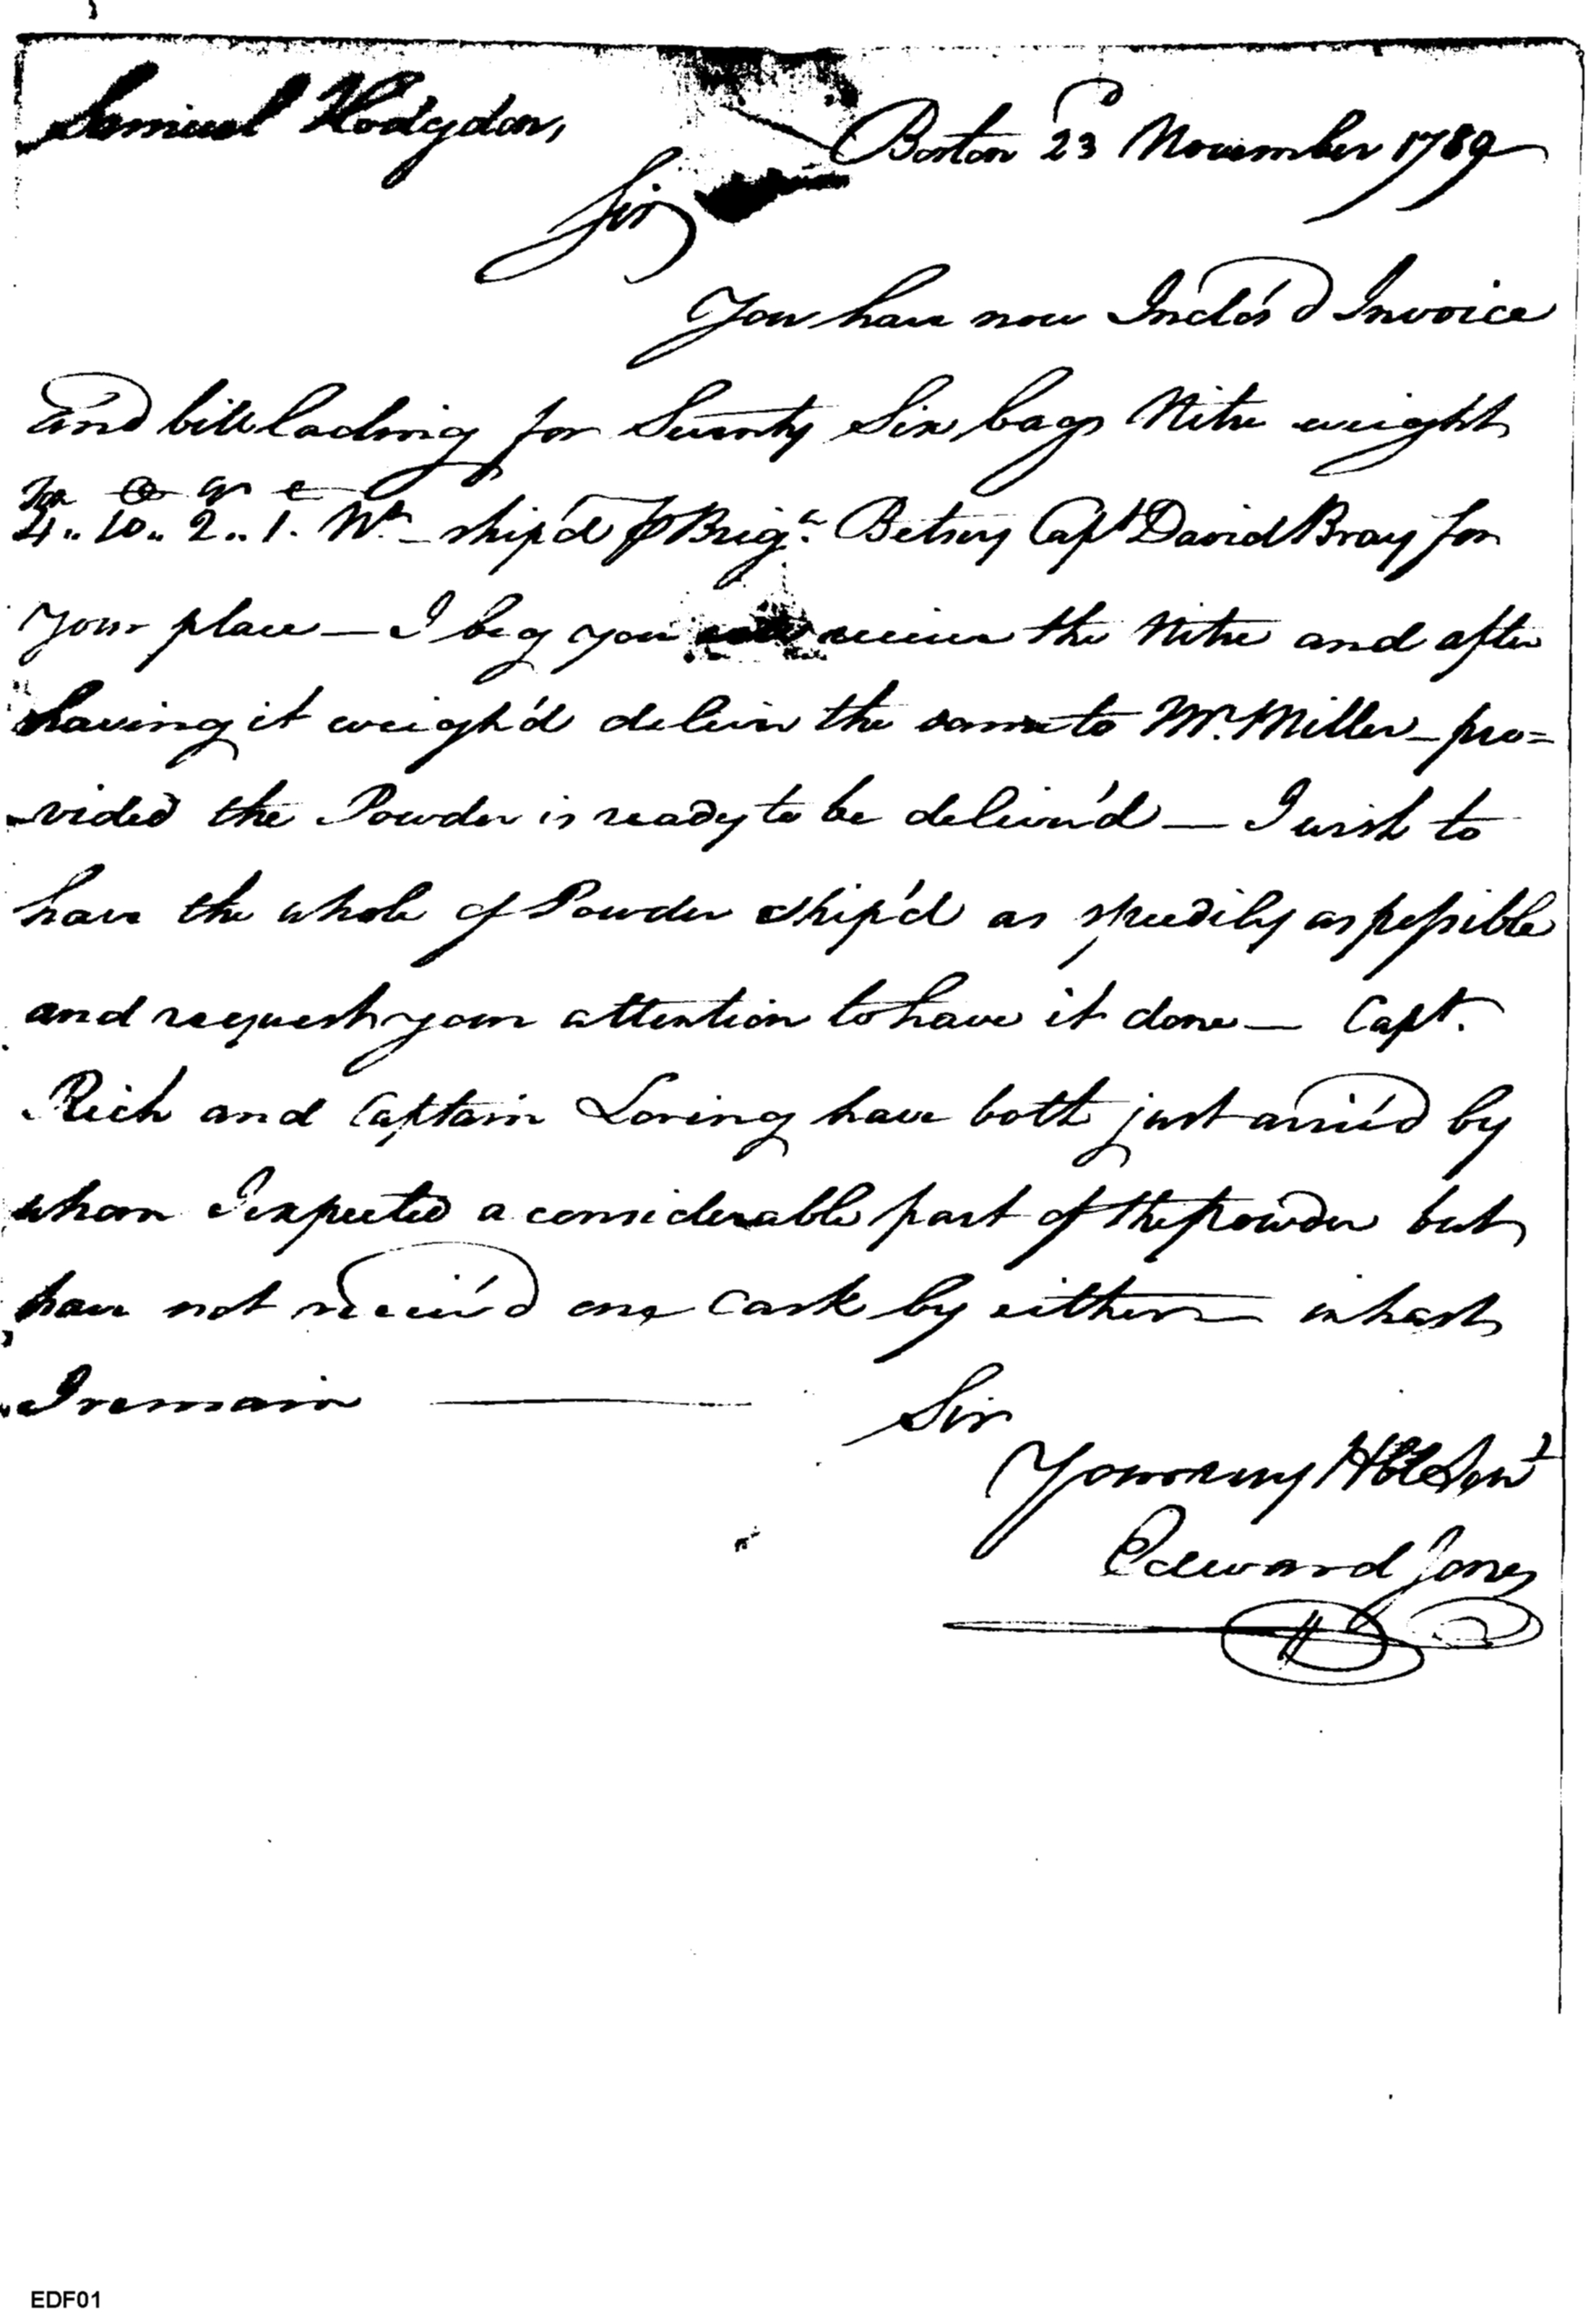 Samuel Hodgdon,
Boston 23d November 1789
Sir
You have now Inclos'd Invoice
and bill lading for Seventy Six bags Nitre weight
Ton C qr
4.. 10.. 2.. 1. Wt. ship'd ⅌ Brign. Betsey Capt David Bray for
Your place — I beg you receive the Nitre and after
having it weigh'd deliver the same to Mr. Miller — pro=
vided the Powder is ready to be deliver'd — I wish to
have the whole of Powder ship'd as speedily as possible
and request your attention to have it done — Capt.
Rich and Captain Loring have both just arriv'd by
whom I expected a considerable part of the powder but
have not receiv'd one Cask by either — in hast
I remain — Sir
Your very Hble Servt
Edward Jones
EDF01